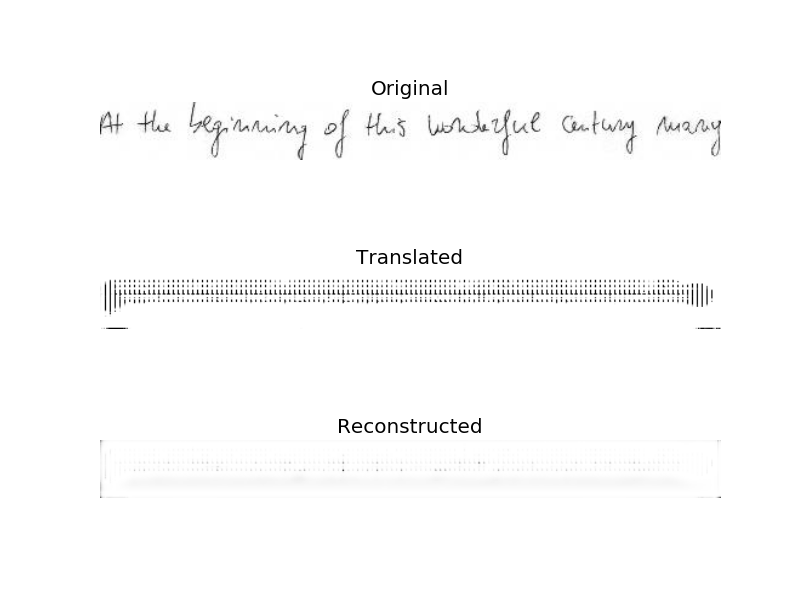 Original
At the beginning of this wonderful century many
Translated
Reconstructed